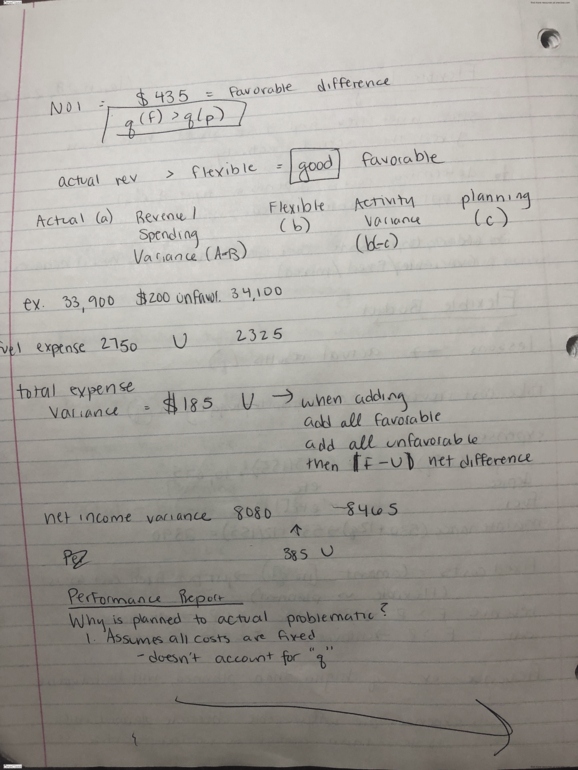 NOI = $435 = favorable difference
q(f) > q(p)
actual rev > flexible = good favorable
Actual (a) Revenue/ Flexible Activity planning
Spending (b) Variance (c)
Variance (A-B) (b-c)
ex. 33,900 $200 unfavor. 34,100
expense 2750 U 2325
total expense
variance = $185 U → when adding
add all favorable
add all unfavorable
then |F-U| net difference
net income variance 8080 8465
↑
385 U
Performance Report
Why is planned to actual problematic?
1. Assumes all costs are fixed
- doesn't account for "q"